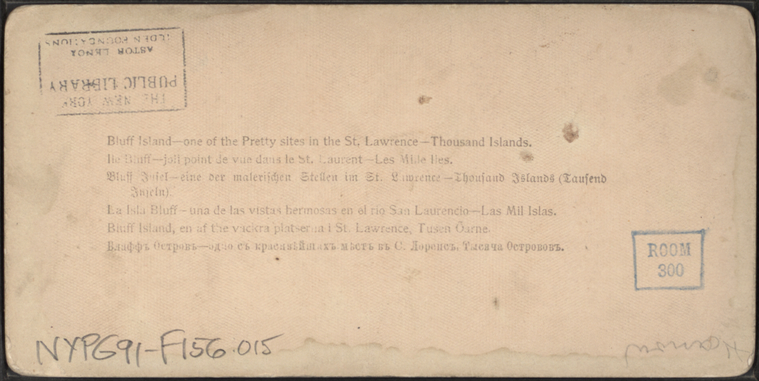 THE NEW YORK
PUBLIC LIBRARY
ASTOR LENOX
TILDEN FOUNDATIONS
Bluff Island—one of the Pretty sites in the St. Lawrence—Thousand Islands.
Ile Bluff—joli point de vue dans le St. Laurent—Les Mille Iles.
Bluff Insel—eine der malerischen Stellen im St. Lawrence—Thousand Islands (Tausend
Inseln).
La Isla Bluff—una de las vistas hermosas en el rio San Laurencio—Las Mil Islas.
Bluff Island, en af the vackra platserna i St. Lawrence, Tusen Öarne.
Блаффъ Островъ—одно съ красивѣйшихъ мѣстъ въ С. Лоренсъ, Тысяча Острововъ.
ROOM
300
NYPG91-F156.015